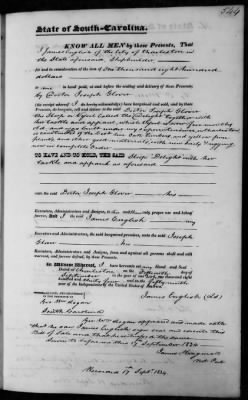 544
State of South-Carolina.
KNOW ALL MEN by these Presents, That
I James English of the City of Charleston in
the State aforesaid, Shipbuilder
for and in consideration of the sum of Six thousand eight hundred
dollars
to me in hand paid, at and before the sealing and delivery of these Presents,
by Doctor Joseph Glover
(the receipt whereof I do hereby acknowledge) have bargained and sold, and by these
Presents, do bargain, sell and deliver to the said Doctor Joseph Glover
the Ship or Vessel called the Delight together with
her tackle and apparel, which vessel is four months
old and was built under my superintendence, at Charleston
of the best live Oak, Cedar and yellow pine
and other good materials, with new Rigging
now in complete Order
TO HAVE AND TO HOLD, THE SAID Ship Delight with her
tackle and apparel as aforesaid
unto the said Doctor Joseph Glover his
Executors, Administrators and Assigns, to
and behoof,
forever. And I the said James English my
Executors and Administrators, the said bargained premises, unto the said Joseph
Glover his
Executors, Administrators and Assigns, from and against all persons shall and will
warrant, and forever defend, by these Presents.
In Witness Whereof, I have hereunto set my Hand and Seal
Dated at Charleston on the fifteenth day of
September in the year of our Lord, one thousand eight
hundred and thirty four and in the fifty ninth
year of the Independence of the United States of America.
James English (LS)
Geo. Wm. Logan
South Carolina
Geo. Wm. Logan appeared and made oath
that he saw James English sign seal and execute this
Bill of Sale and that he witnessed the same
Sworn to before me this 17 September 1834
James
Not. Pub.
Recorded 17th Sept. 1834